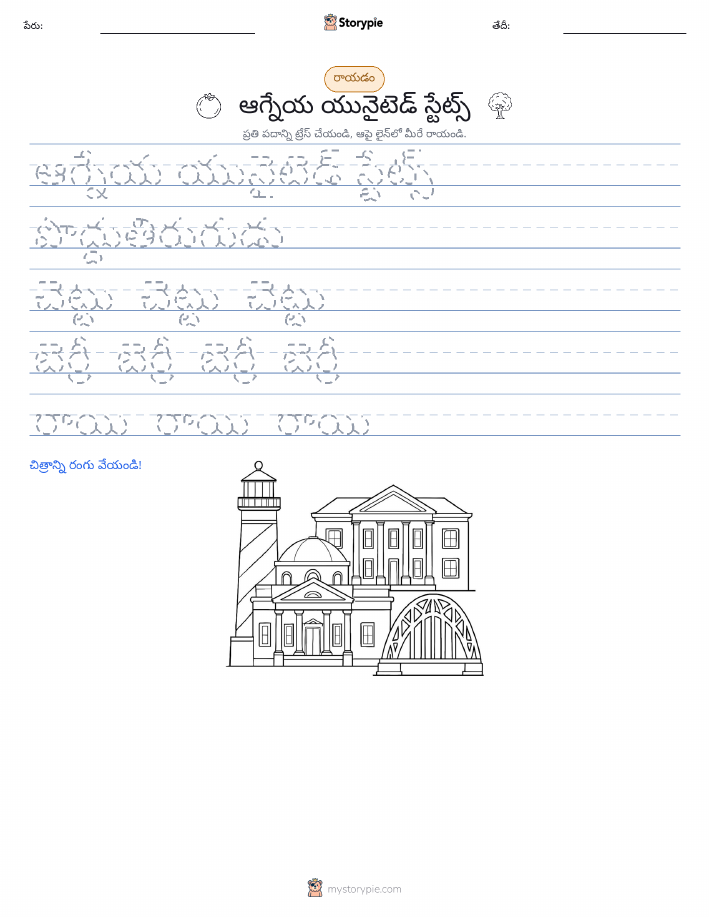 పేరు:
Storypie
తేదీ:
రాయడం
ఆగ్నేయ యునైటెడ్ స్టేట్స్
ప్రతి పదాన్ని ట్రేస్ చేయండి, ఆపై లైన్‌లో మీరే రాయండి.
ఆగ్నేయ యునైటెడ్ స్టేట్స్
పొద్దుతిరుగుడు
చెట్టు చెట్టు చెట్టు
బెర్రీ బెర్రీ బెర్రీ బెర్రీ
రాయి రాయి రాయి
చిత్రాన్ని రంగు వేయండి!
mystorypie.com